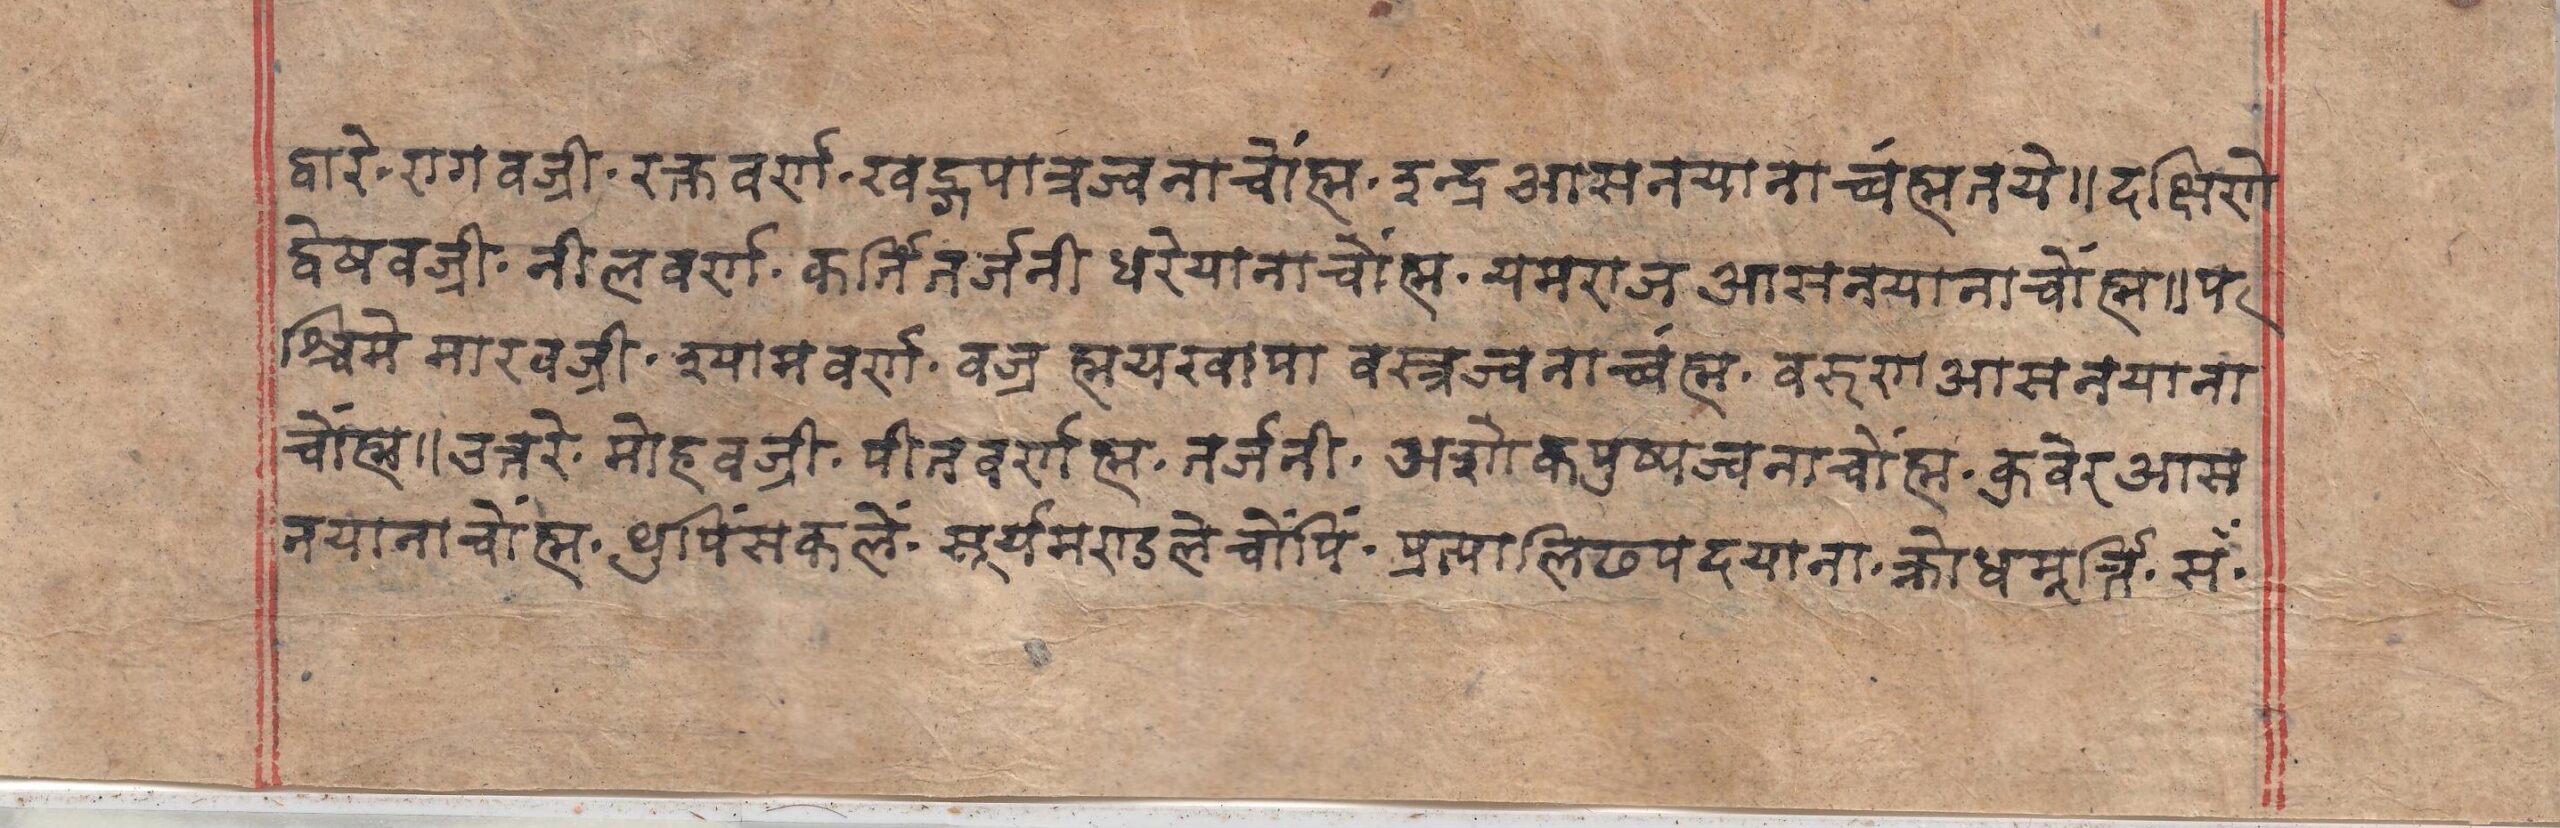 द्वारे·रागवज्री·रक्तवर्ण·खड्गपात्रज्वनाचोंह्म·इन्द्रआसनयानाच्वंह्मतये॥दक्षिणे
द्वेषवज्री·नीलवर्ण·कर्तितर्जनी धरेयानाचोंह्म·यमराजआसनयानाचोंह्म॥प
श्चिमे मारवज्री·श्यामवर्ण·वज्र ह्मयखापा वस्त्रज्वनाच्वंह्म·वरुणआसनयाना
चोंह्म॥उत्तरे·मोहवज्री·पीतवर्णह्म·तर्जनी·अशोकपुष्पज्वनाचोंह्म·कुवेरआस
नयानाचोंह्म·थुपिंसकलें·सूर्यमण्डलेचोंपिं·प्रत्यालिढपदयाना·क्रोधमूर्त्ति·सं·